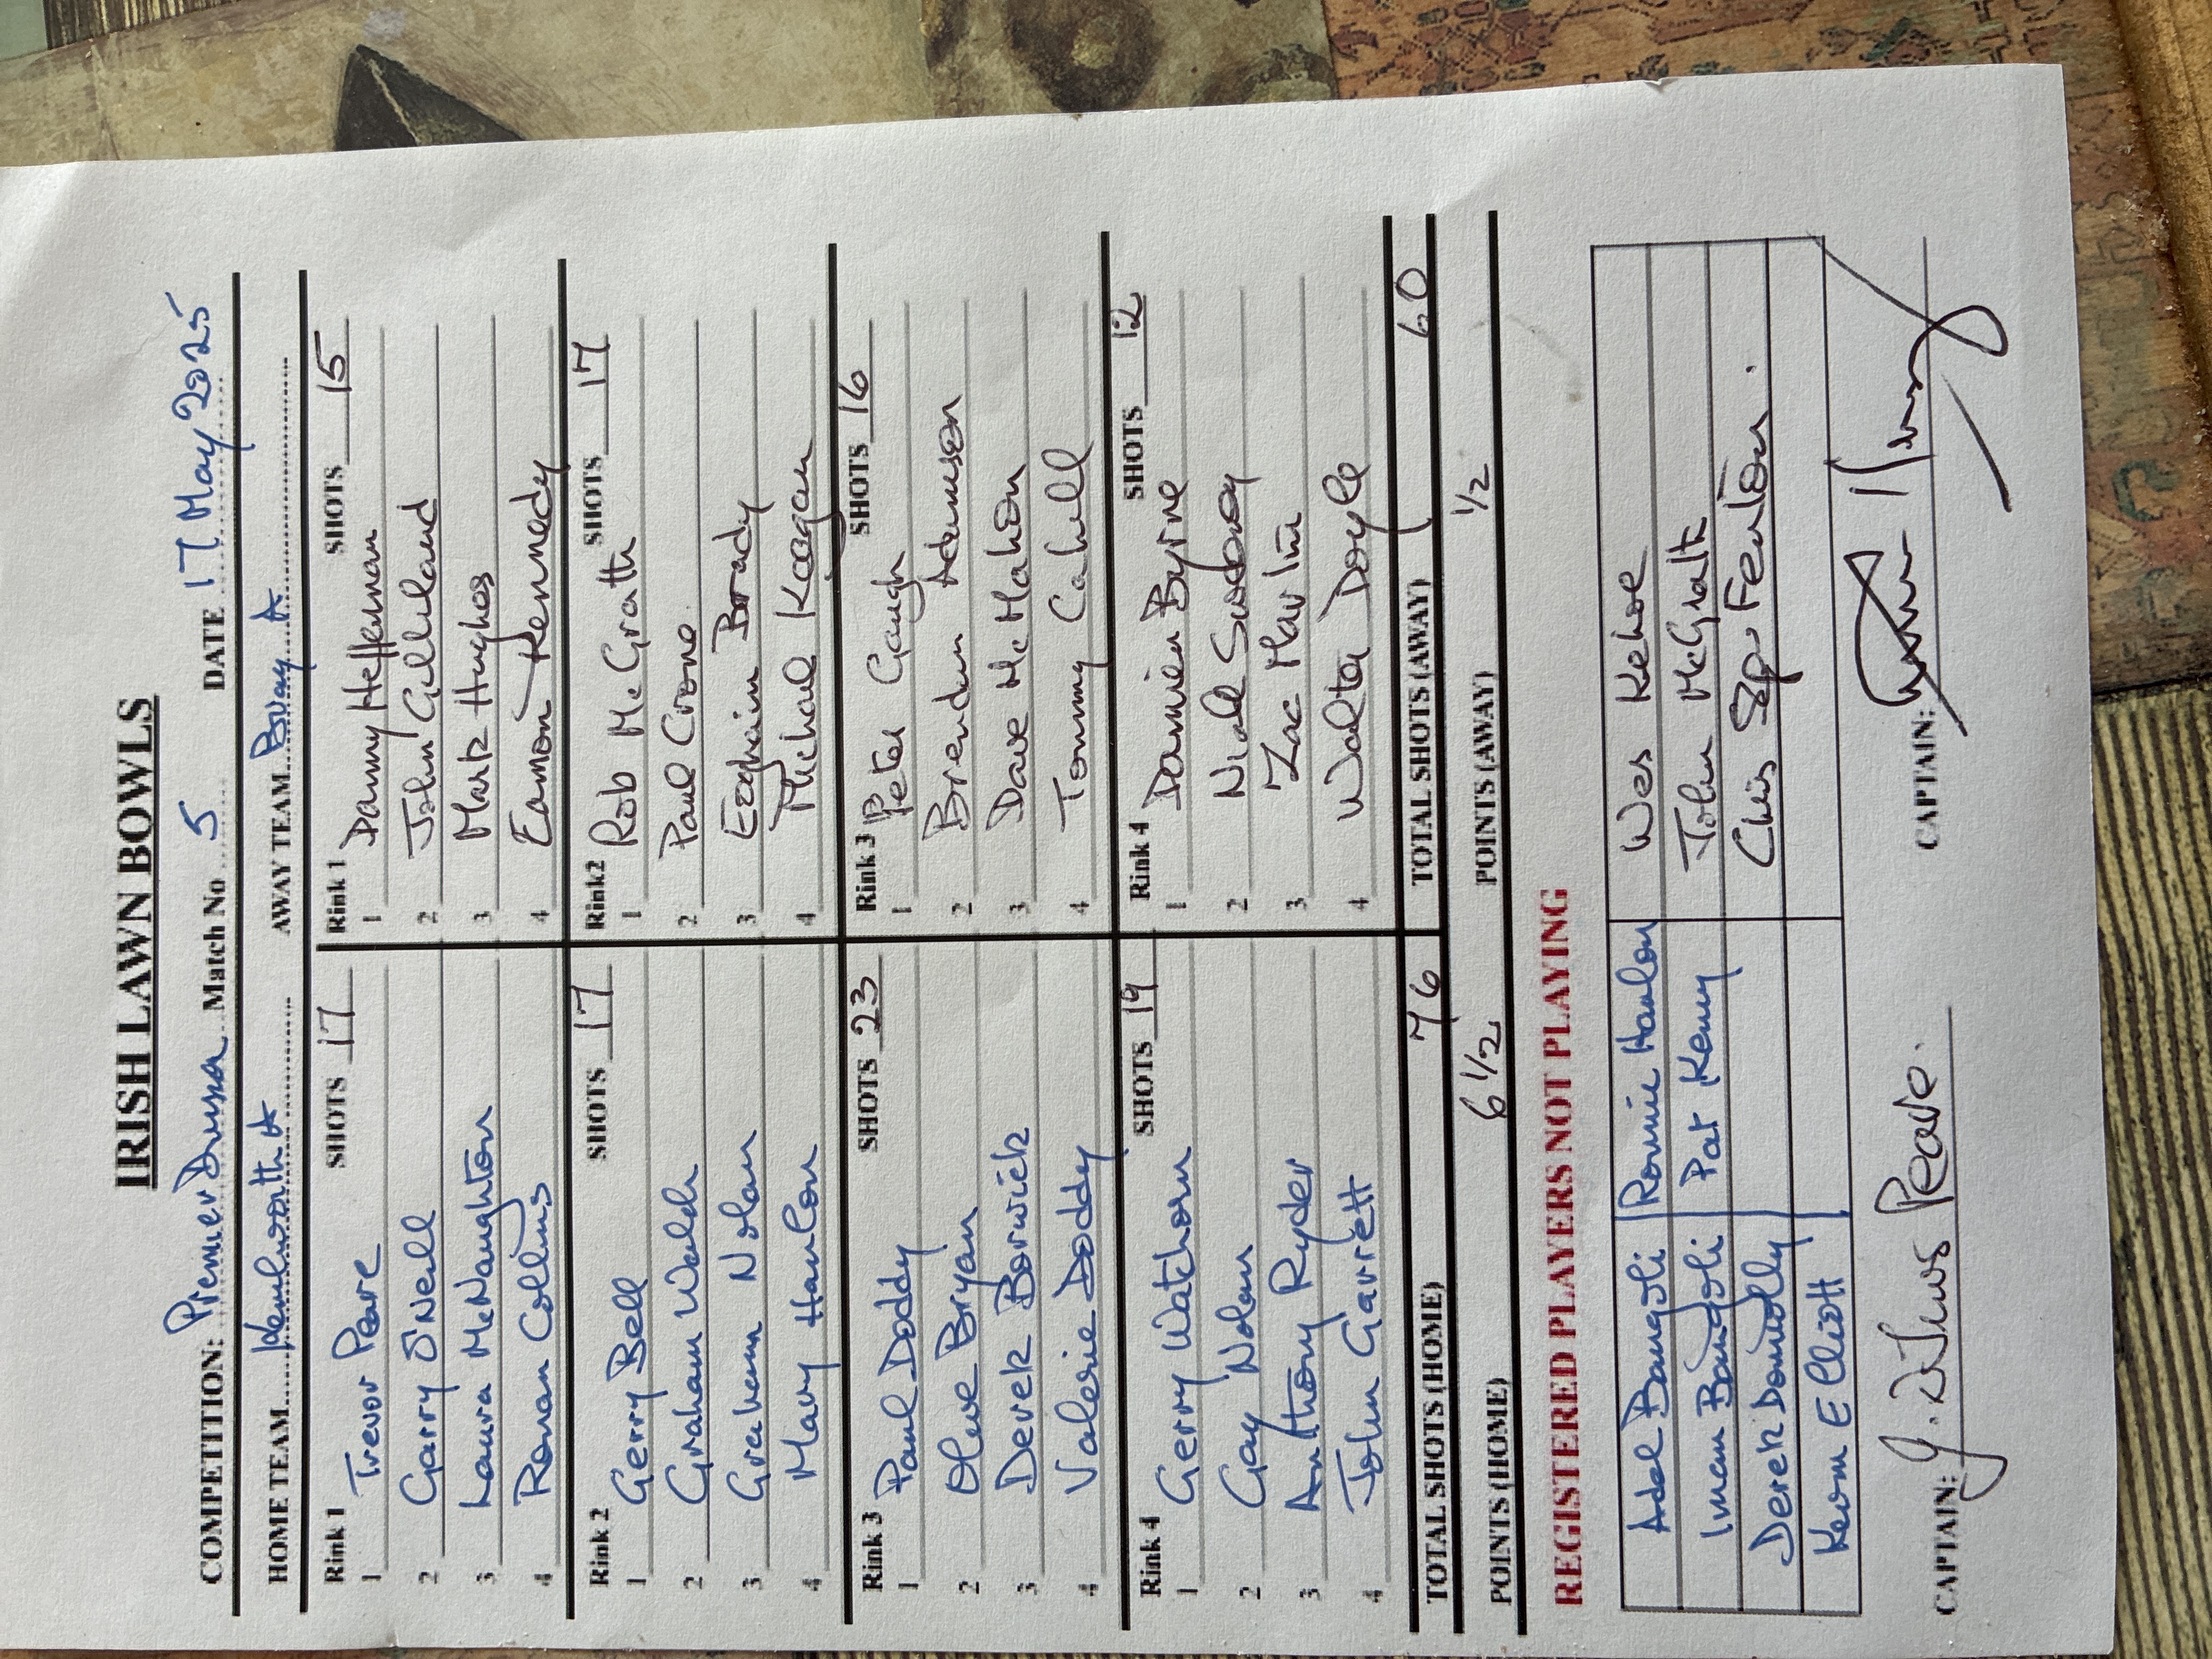 IRISH LAWN BOWLS
COMPETITION: Premier Division Match No 5 DATE 17 May 2025
HOME TEAM Kenilworth A AWAY TEAM Bray A
Rink 1 SHOTS 17 Rink 1 SHOTS 15
1 Trevor Peare 1 Danny Heffernan
2 Garry O'Neill 2 John Gilleland
3 Laura McNaughton 3 Mark Hughes
4 Ronan Collins 4 Eamon Kennedy
Rink 2 SHOTS 17 Rink2 SHOTS 17
1 Gerry Bell 1 Rob McGrath
2 Graham Walsh 2 Paul Crone
3 Graham Nolan 3 Eoghain Brady
4 Mary Hanlon 4 Michael Keegan
Rink 3 SHOTS 23 Rink 3 SHOTS 16
1 Paul Doddy 1 Peter Gough
2 Olive Bryan 2 Brendan Adamson
3 Derek Borwick 3 Dave McMahon
4 Valerie Doddy 4 Tommy Cahill
Rink 4 SHOTS 19 Rink 4 SHOTS 12
1 Gerry Watchorn 1 Damien Byrne
2 Gay Nolan 2 Niall Sweeney
3 Anthony Ryder 3 Zac Martin
4 John Garrett 4 Walter Doyle
TOTAL SHOTS (HOME) 76 TOTAL SHOTS (AWAY) 60
POINTS (HOME) 6 1/2 POINTS (AWAY) 1/2
REGISTERED PLAYERS NOT PLAYING
Adel Bangoli Ronnie Hanlon Wes Kehoe
Iman Bangoli Pat Kenny John McGrath
Derek Donnolly Chris Fenton.
Kevin Elliott
CAPTAIN: Peare. CAPTAIN: